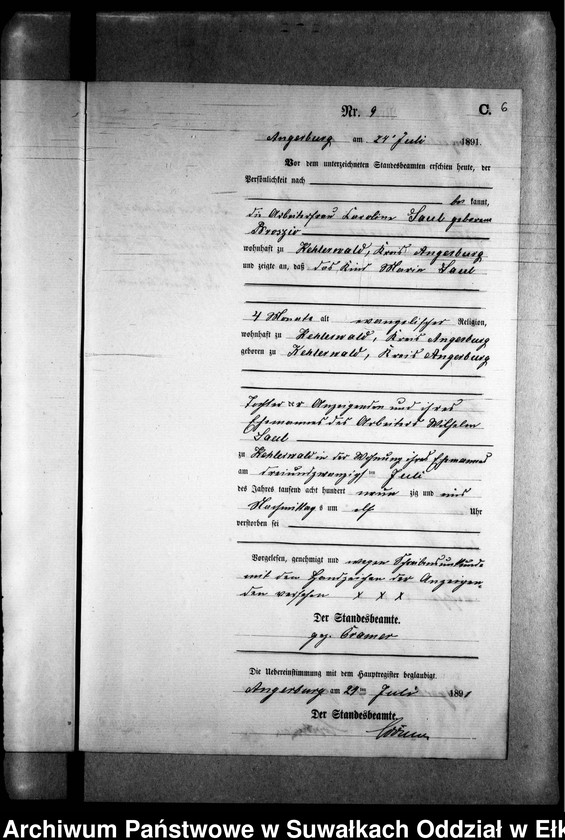 Nr. 9 C. 6
Angerburg am 24ten Juli 1891.
Vor dem unterzeichneten Standesbeamten erschien heute, der
Persönlichkeit nach
be kannt,
die Arbeiterfrau Caroline Saul geborene
Broszio
wohnhaft zu Kehlerwald, Kreis Angerburg
und zeigte an, daß das Kind Maria Saul
4 Monate alt evangelischer Religion,
wohnhaft zu Kehlerwald, Kreis Angerburg
geboren zu Kehlerwald, Kreis Angerburg
Tochter der Anzeigenden und ihres
Ehemannes des Arbeiters Wilhelm
Saul
zu Kehlerwald in der Wohnung ihres Ehemannes
am dreiundzwanzigsten Juli
des Jahres tausend acht hundert neun zig und eins
Nachmittags um elf Uhr
verstorben sei
Vorgelesen, genehmigt und wegen Schreibensunkunde
mit dem Handzeichen der Anzeigen-
den versehen x x x
Der Standesbeamte.
gez. Cramer
Die Uebereinstimmung mit dem Hauptregister beglaubigt.
Angerburg am Juli 1891
Der Standesbeamte.
Archiwum Państwowe w Suwałkach Oddział w Ełk